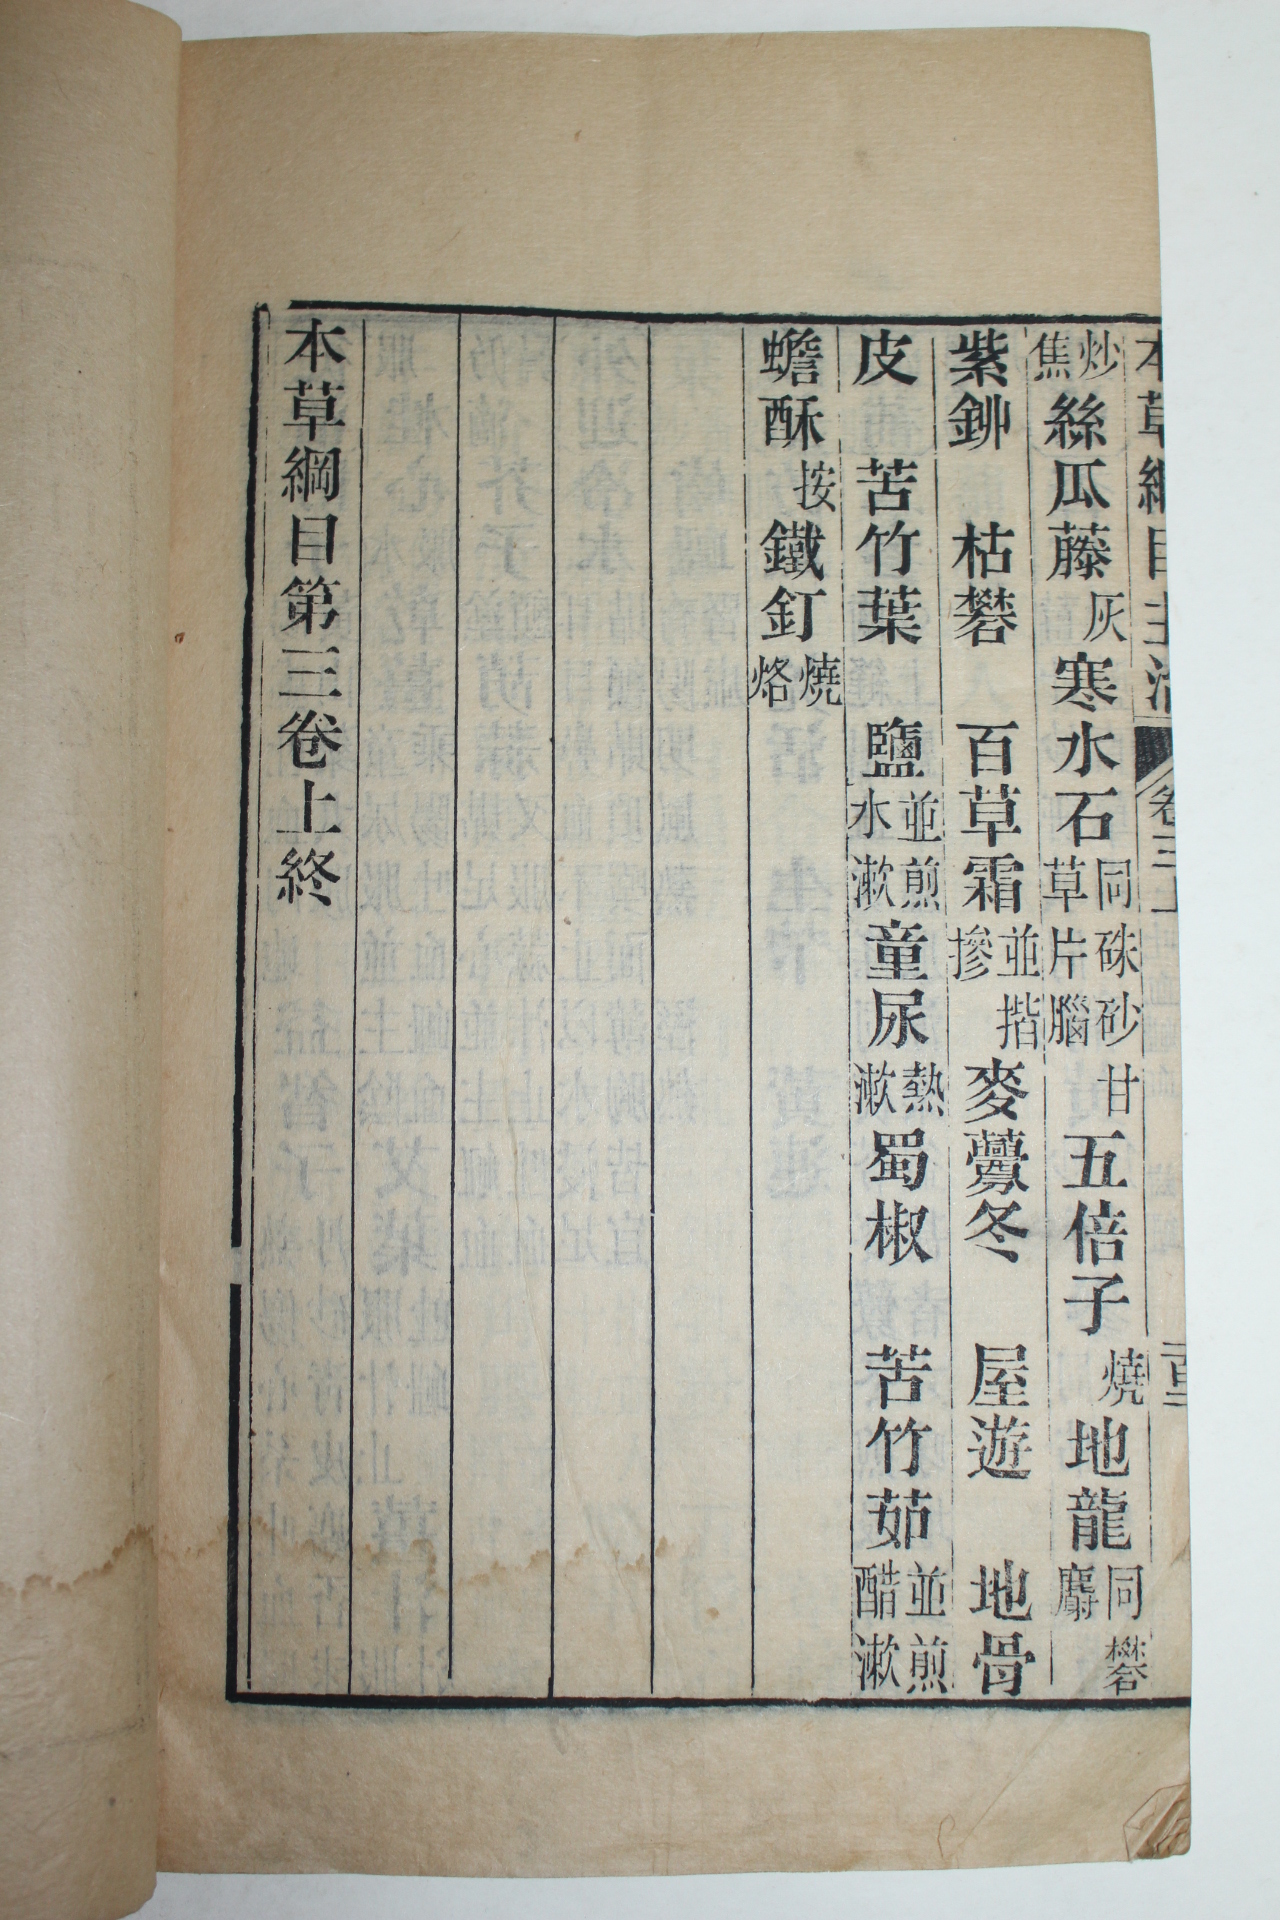 本草綱目主治 卷三上
炒焦絲瓜藤灰寒水石同硃砂甘草片腦五倍子燒地龍同礬麝
紫鉚 枯礬 百草霜並揩摻麥虋冬 屋遊 地骨
皮 苦竹葉 鹽並煎水漱童尿熱漱蜀椒 苦竹茹並煎醋漱
蟾酥按鐵釘燒烙
本草綱目第三卷上終